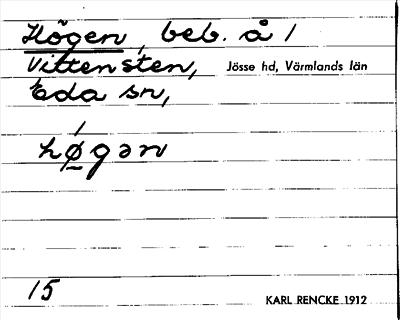 Högen, beb. å 1
Vittensten, Jösse hd, Värmlands län
Eda sn,
hǿ̱gən
15 KARL RENCKE 1912